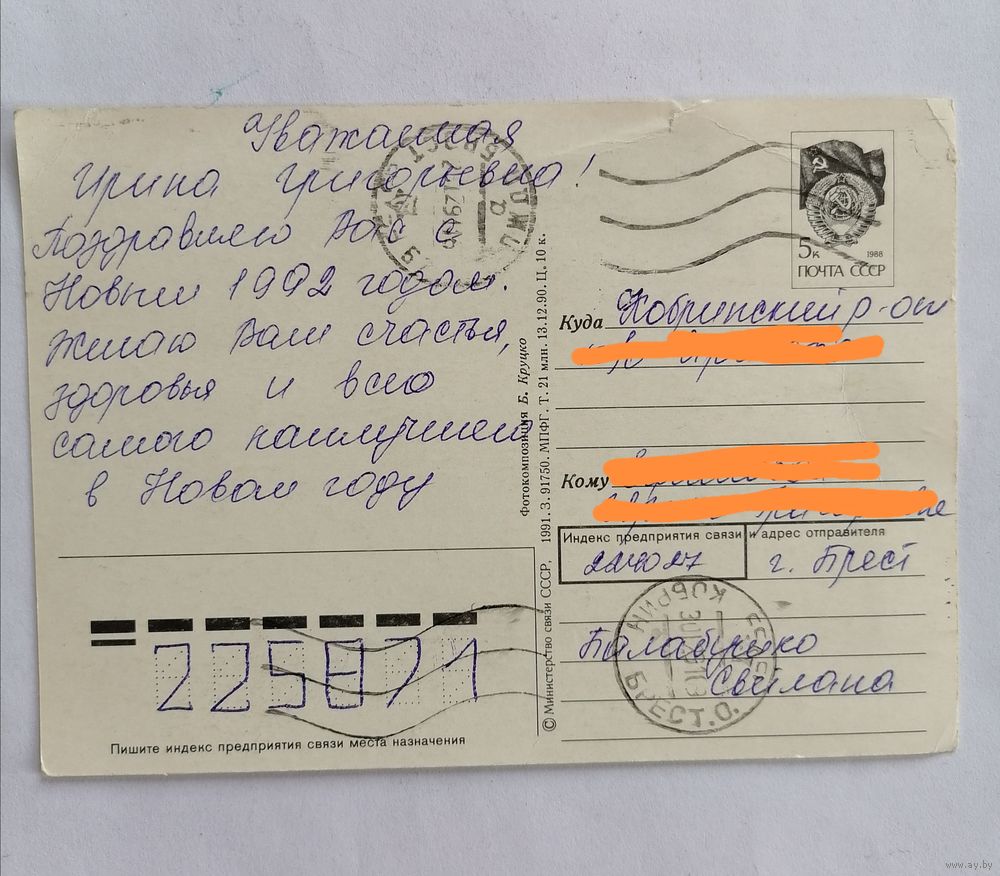 Уважаемая
Ирина Григорьевна!
Поздравляю Вас с
Новым 1992 годом.
Желаю Вам счастья,
здоровья и всего
самого наилучшего
в Новом году
5к
1988
ПОЧТА СССР
Куда Кобринский р-он
Кому
Индекс предприятия связи и адрес отправителя
224027
г. Брест
Светлана
КОБРИН
БРЕСТ. О.
Фотокомпозиция Б. Круцко
© Министерство связи СССР, 1991. З. 91750. МПФГ. Т. 21 млн. 13.12.90. Ц. 10 к.
225871
Пишите индекс предприятия связи места назначения
www.ay.by